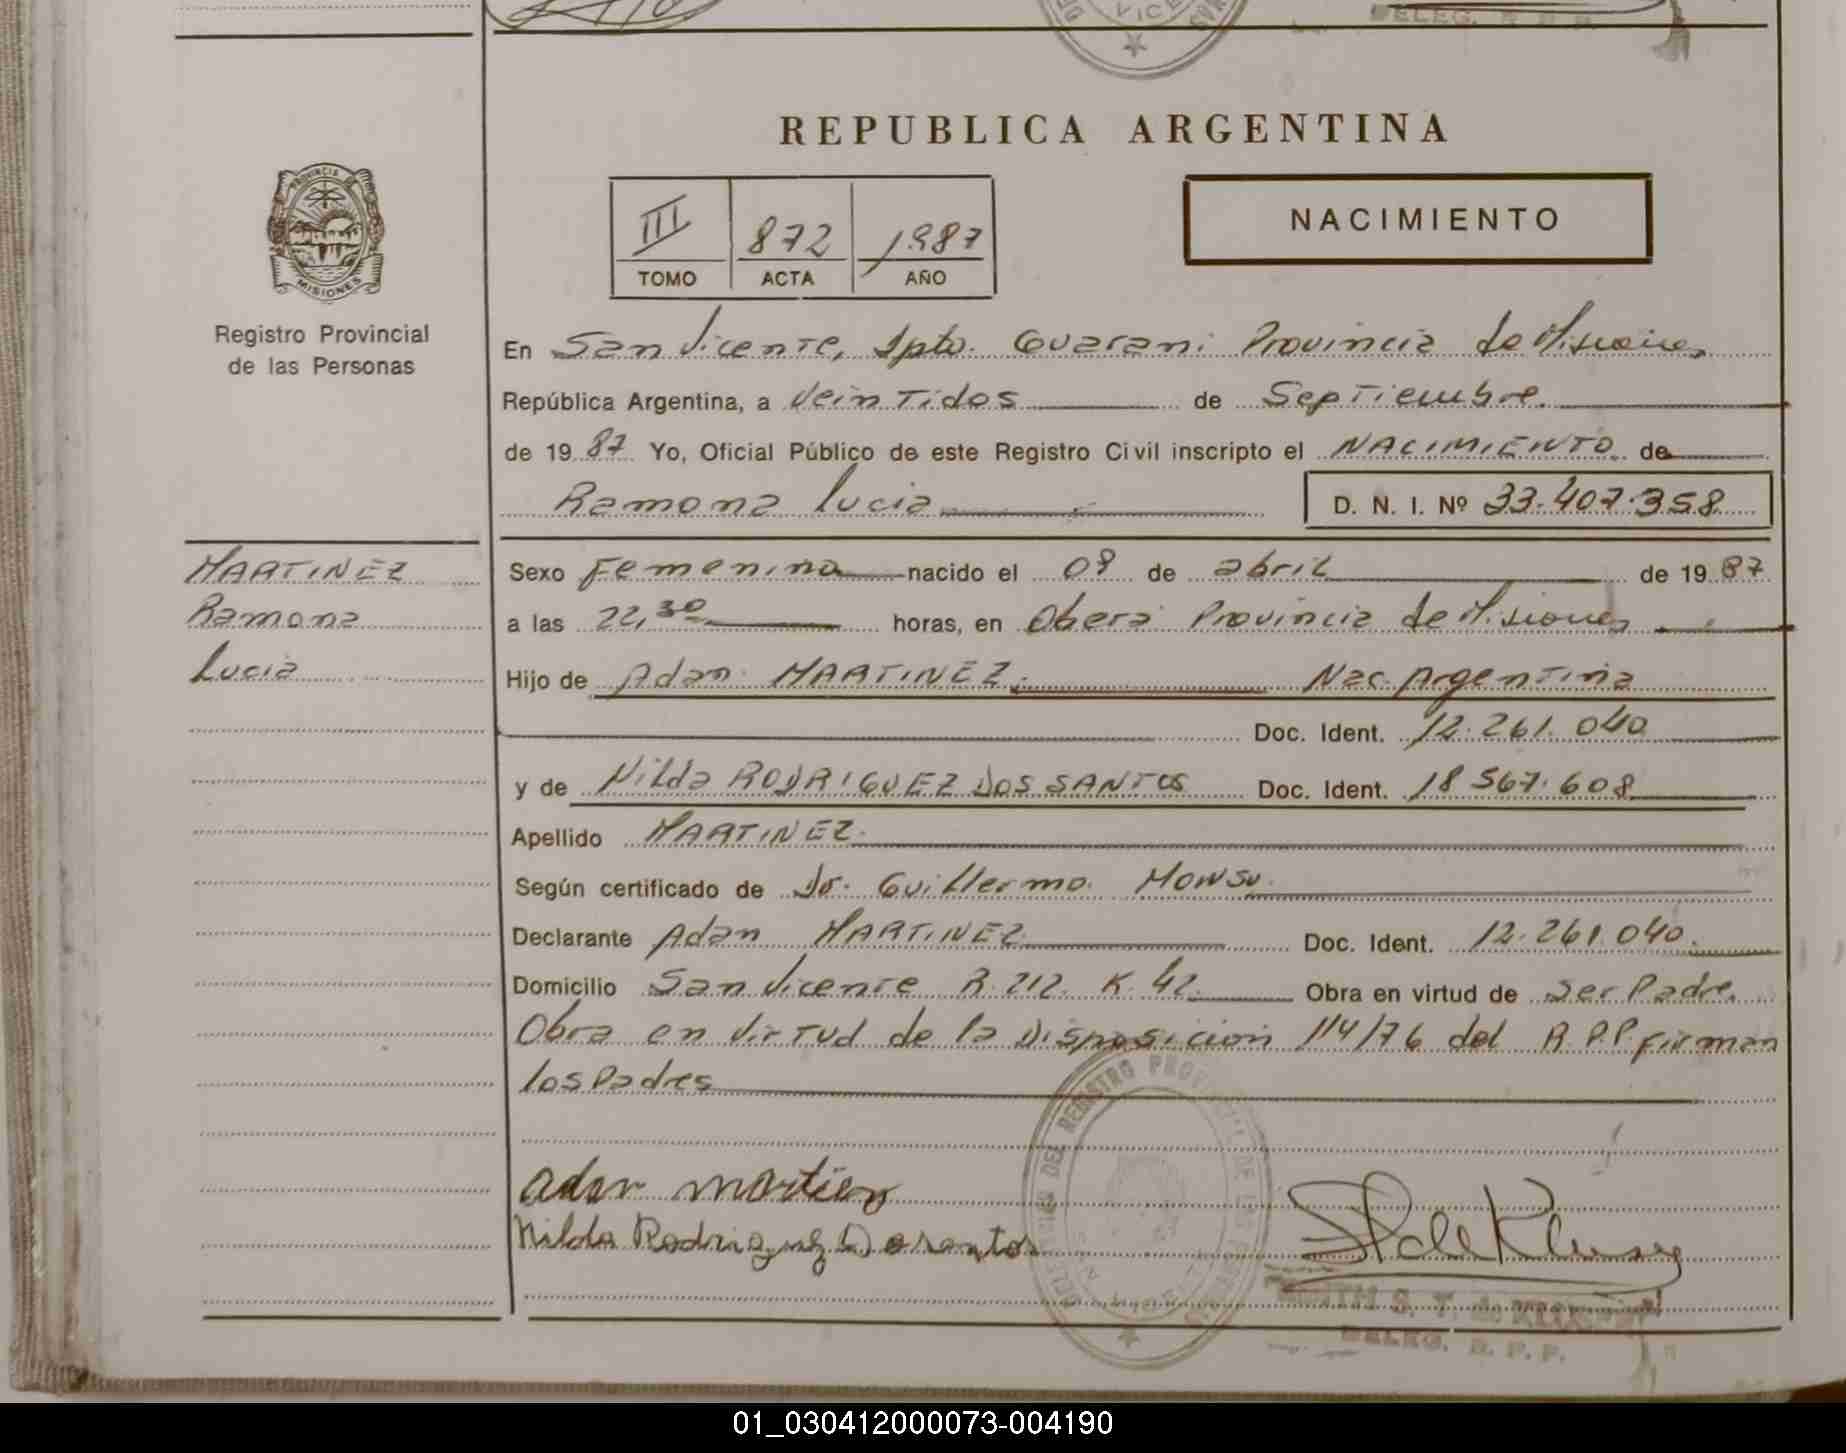 DELEG. R. P. P.
REPUBLICA ARGENTINA
PROVINCIA DE
MISIONES
Registro Provincial
de las Personas
III 872 1987
TOMO ACTA AÑO
NACIMIENTO
En San Vicente, Dpto. Guarani Provincia de Misiones
República Argentina, a Veintidos de Septiembre.
de 19 87 Yo, Oficial Público de este Registro Civil inscripto el NACIMIENTO de
Ramona Lucia D. N. I. Nº 33.407.358
MARTINEZ
Ramona
Lucia
Sexo Femenina nacido el 08 de abril de 19 87
a las 22,30 horas, en Oberá Provincia de Misiones
Hijo de Adan MARTINEZ. Nac. Argentina
Doc. Ident. 12.261.040
y de Nilda RODRIGUEZ DOS SANTOS Doc. Ident. 18.567.608
Apellido MARTINEZ.
Según certificado de Dr. Guillermo
Declarante Adan MARTINEZ Doc. Ident. 12.261.040.
Domicilio San Vicente R. 212. K. 42. Obra en virtud de ser Padre.
Obra en virtud de la Disposicion 114/76 del R.P.P. firman
los Padres
DELEGACION DEL REGISTRO PROVINCIAL DE LAS PERSONAS
adan martiez
Nilda Rodriguez Dosantos
S. T. de
DELEG. R. P. P.
01_030412000073-004190